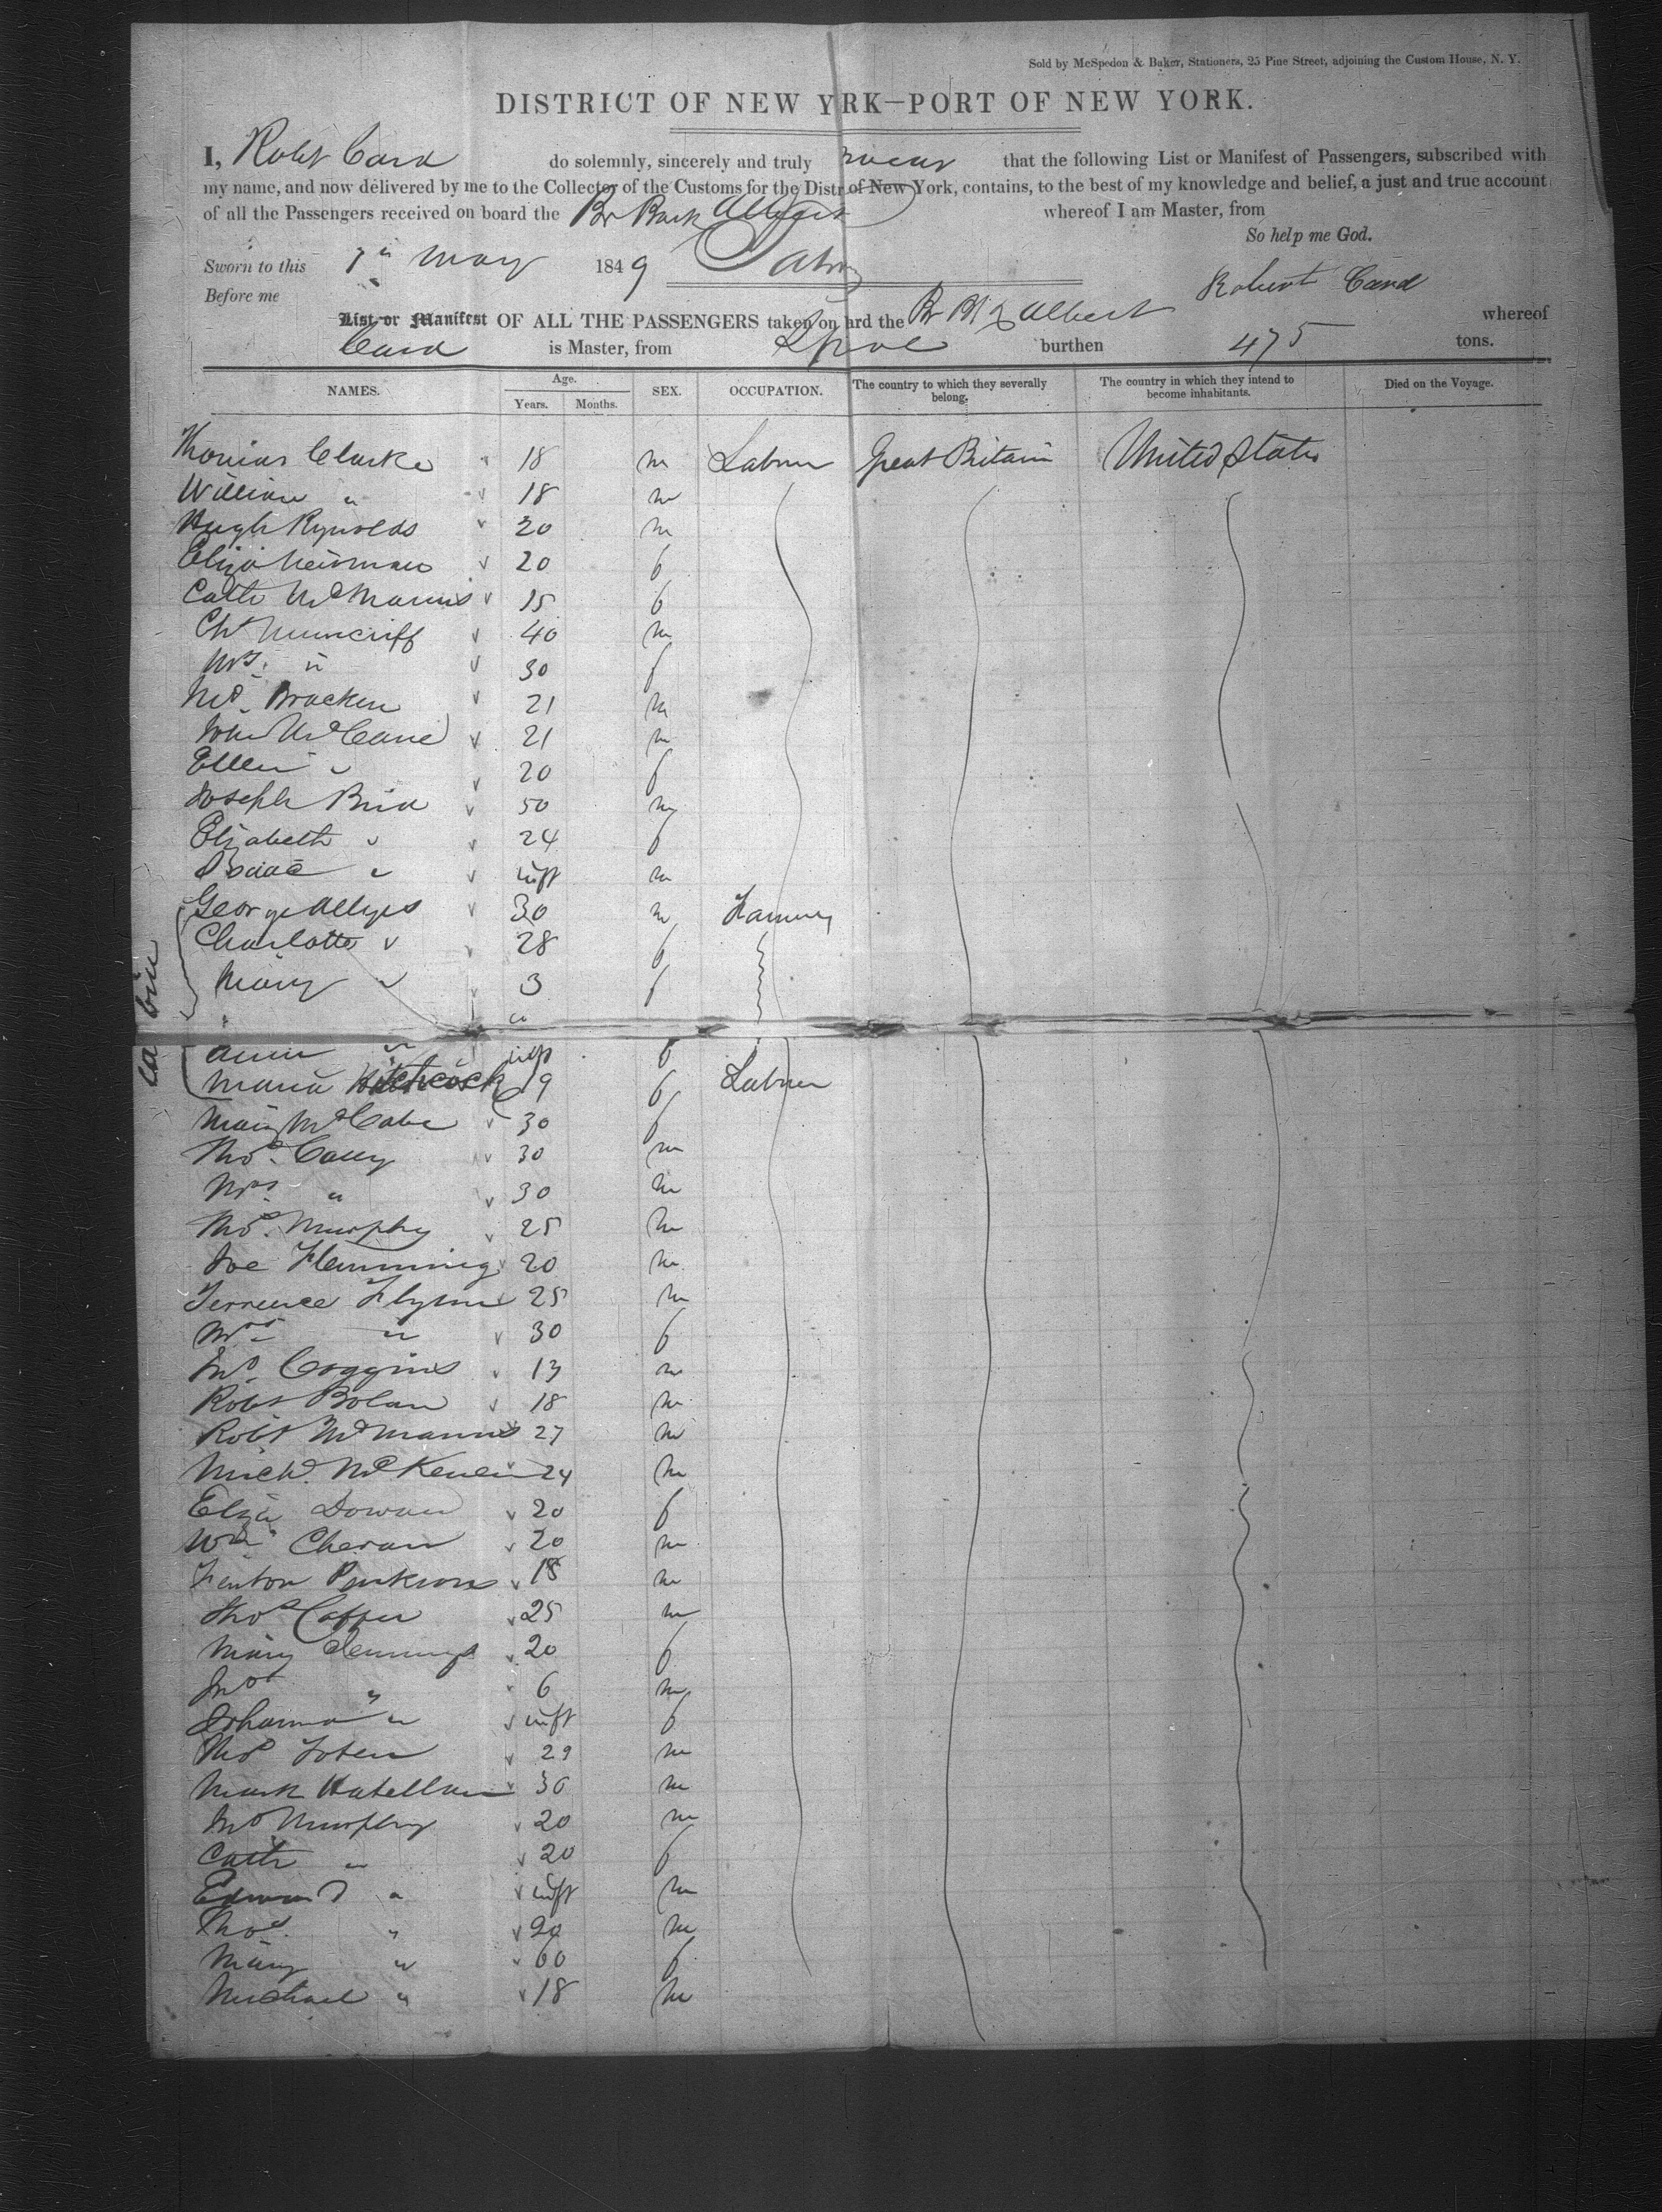 Sold by McSpedon & Baker, Stationers, 25 Pine Street, adjoining the Custom House, N. Y.
DISTRICT OF NEW YRK—PORT OF NEW YORK.
I, Robt Card do solemnly, sincerely and truly swear that the following List or Manifest of Passengers, subscribed with
my name, and now delivered by me to the Collector of the Customs for the Distr of New York, contains, to the best of my knowledge and belief, a just and true account
of all the Passengers received on board the Br Bark Albert whereof I am Master, from
So help me God.
Sworn to this 7th May 1849
Before me
Robert Card
List or Manifest OF ALL THE PASSENGERS taken on ard the Br Bk Albert whereof
Card is Master, from Lpool burthen 475 tons.
NAMES. Age. Years. Months. SEX. OCCUPATION. The country to which they severally belong. The country in which they intend to become inhabitants. Died on the Voyage.
Thomas Clarke 18 m Labour Great Britain United States
William " 18 m
Hugh Rynolds 20 m
Eliza Newman 20 f
Cath McMannis 15 f
Chs Muncriff 40 m
Mrs. " 30 f
Bracken 21 m
John McCane 21 m
Ellen " 20 f
Joseph 50 m
Elizabeth " 24 f
Isaac " inft m
George 30 m Farmer
Charlotte " 28 f
Mary " 3 f
Cabin
Annie " inf f
Maria Hitchcock 19 f Labour
Mary McCabe 30 f
Thos. 30 m
Mrs " 30 m
Thos. Murphy 25 m
Joe Flemming 20 m
Terrence Flynn 25 m
Mrs " 30 f
Jno. Coggins 13 m
Robt Bolan 18 m
Robt McMannis 27 m
Michl. 24 m
Eliza Dowan 20 f
Wm Cheran 20 m
Fenton 18 m
Thos 25 m
Mary Jennings 20 f
Jno " 6 m
Johanna " inft f
Thos 29 m
Mark 30 m
Jno Murphy 20 m
Cath " 20 f
Edward " inft m
Thos. " 20 m
Mary " 60 f
Michael " 18 m